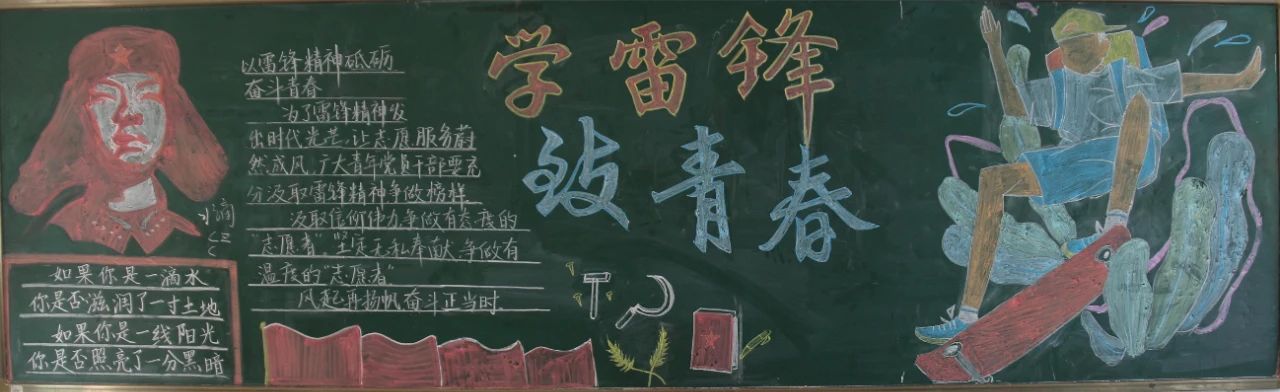 学雷锋
致青春
以雷锋精神砥砺
奋斗青春
为了雷锋精神发
出时代光芒,让志愿服务蔚
然成风,广大青年党员干部要充
分汲取雷锋精神争做榜样.
汲取信仰伟力,争做有态度的
“志愿者”.坚定无私奉献,争做有
温度的“志愿者”
风起再扬帆奋斗正当时.
如果你是一滴水
你是否滋润了一寸土地
如果你是一线阳光
你是否照亮了一分黑暗